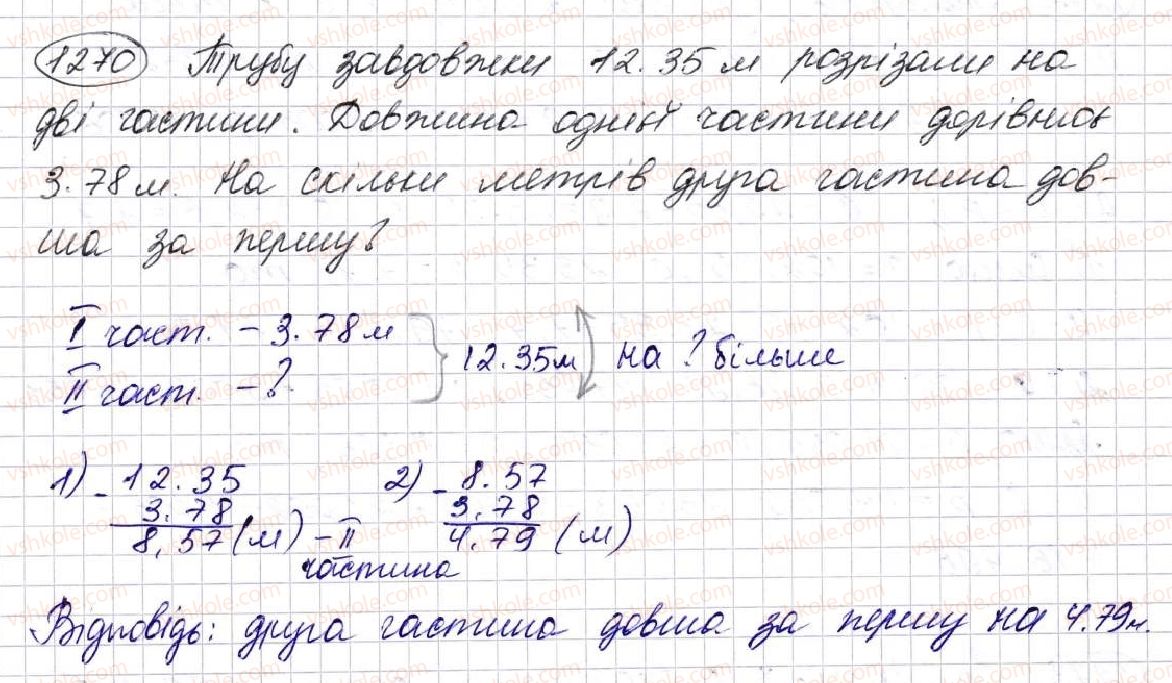 1270 Трубу завдовжки 12.35 м розрізали на
дві частини. Довжина однієї частини дорівнює
3.78 м. На скільки метрів друга частина дов-
ша за першу?
I част. - 3.78 м
II част. - ?
12.35 м на ? більше
1) - 12.35
3.78
8,57 (м) - II
частина
2) - 8.57
3.78
4.79 (м)
Відповідь: друга частина довша за першу на 4.79 м.